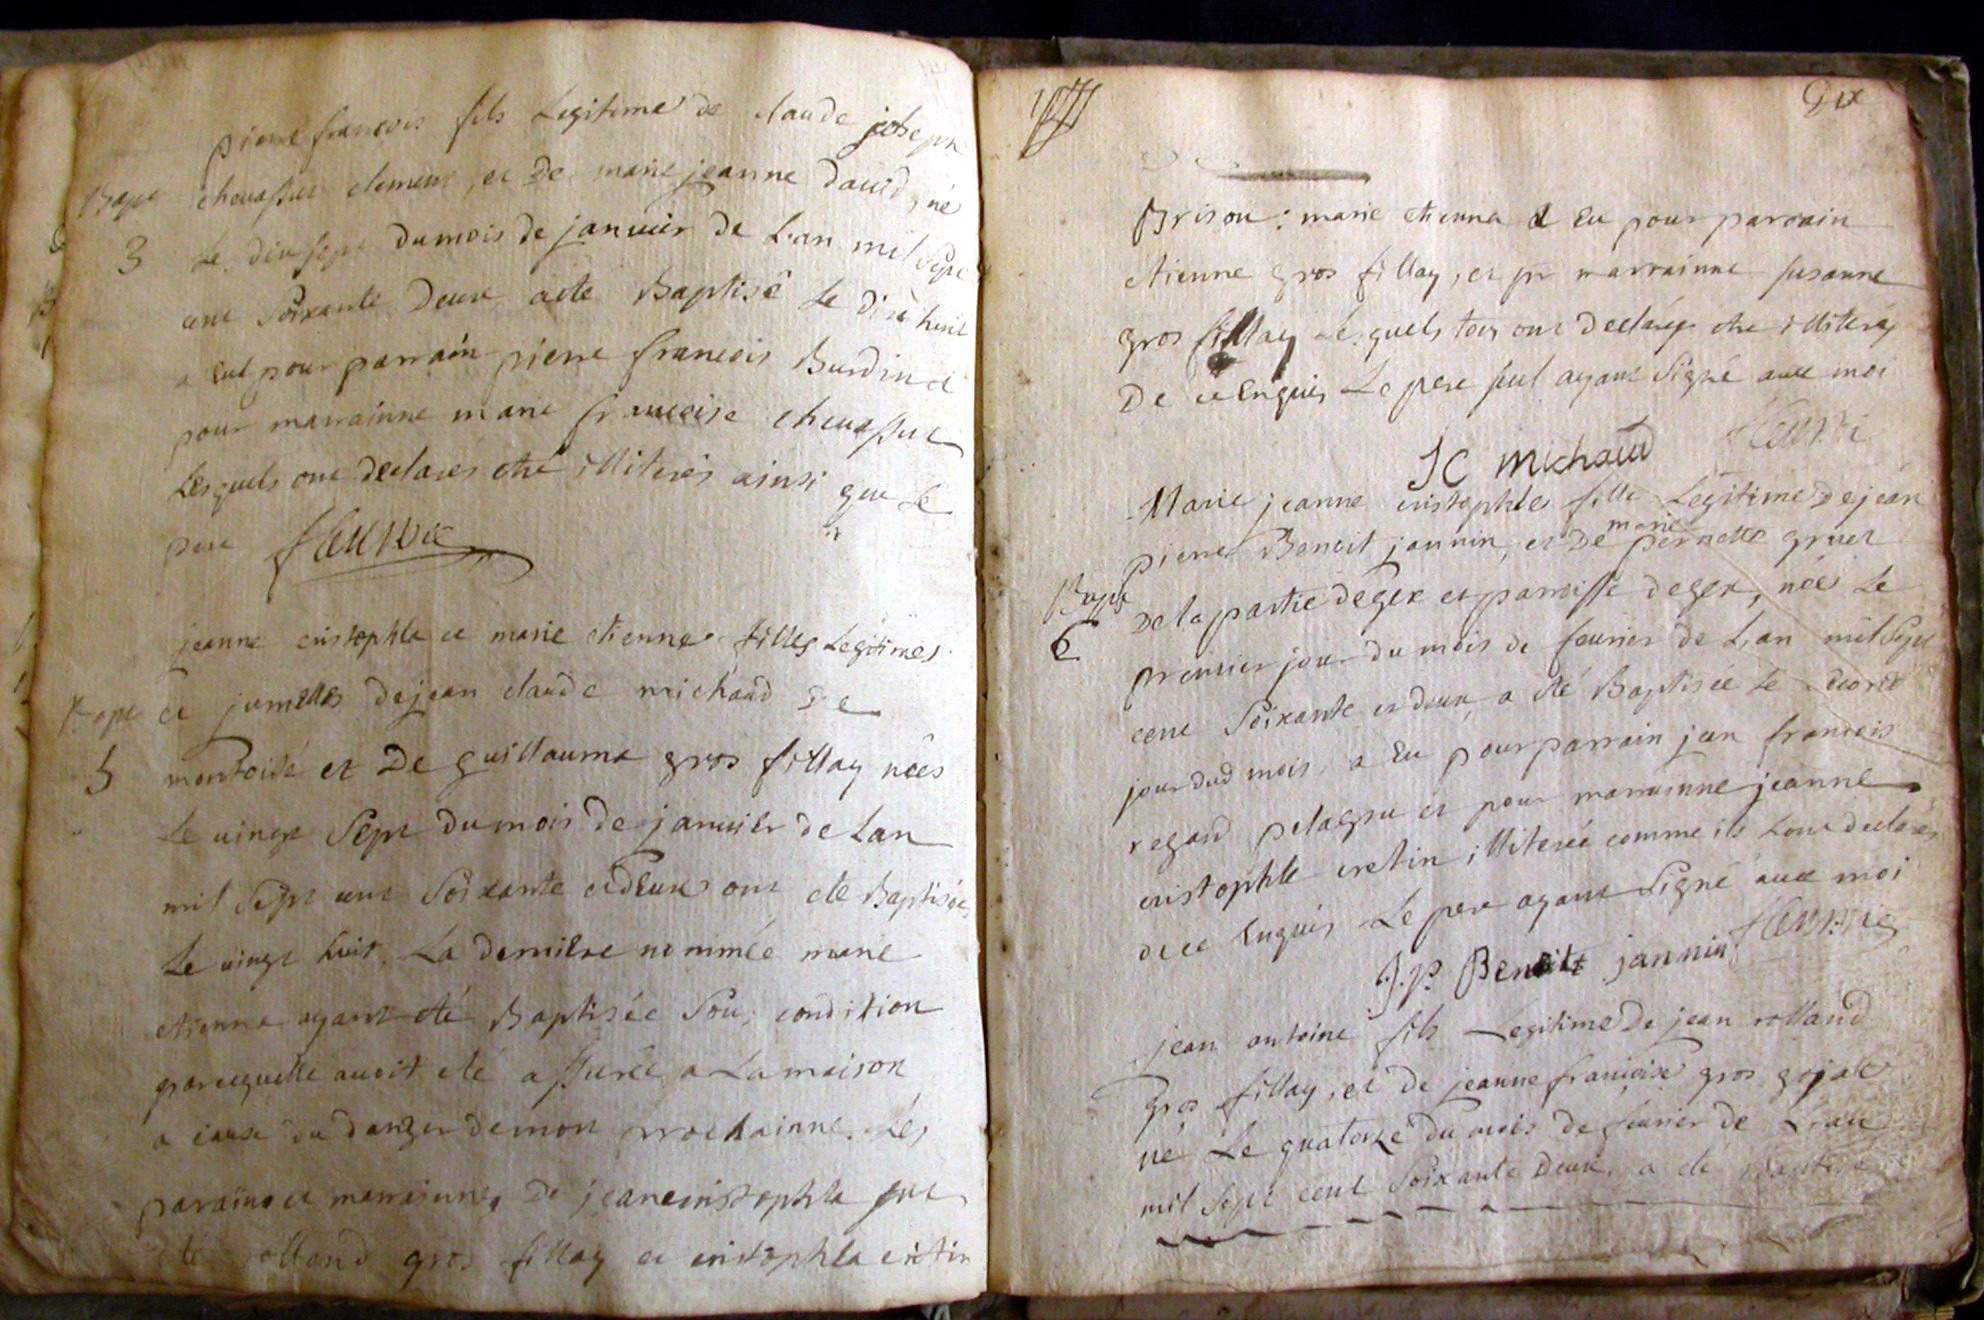 pierre francois fils Legitime de claude joseph
Bapt chevassus clement, et De marie jeanne david, né
3 Le dix sept du mois de janvier de L'an mil sept
cent soixante Deux a été Baptisé Le dix huit
a Eut pour parrain pierre francois Burdin et
pour marrainne marie francoise chevassus
Lesquels ont declarés etre illiterés ainsi que Le
pere
jeanne cristophle et marie etienne filles Legitimes
Bapt et jumelles de jean claude michaud De
5 montoisé et De guillauma gros fillay nées
Le vingt Sept du mois de janvier de Lan
mil Sept cent Soixante et dEux ont eté Baptisées
Le vingt huit. La derniere nommée marie
etienne ayant eté Baptisée Sous condition
parcequelle avoit eté assurée a La maison
a cause du danger de mort prochainne. Les
parains et marrainnes De jeane cristophla ont
été rolland gros fillay et cristophla cretin
Dix
Brison: marie etienne a Eu pour parrain
etienne gros fillay, et pr marrainne susanne
gros fillay Lesquels tous ont declarés etre illiterés
De ce Enquis Le pere seul ayant signé avec moi
JC Michaud
Marie jeanne cristophle fille Legitime de jean
pierre Benoit jannin, et De marie pernette gruet
Bapt
De la partie de gex et parroisse de gex, née Le
6
premier jour du mois de fevrier de L'an mil Sept
cent Soixante et deux, a eté Baptisée Le second
jour dud mois, a Eu pour parrain jean francois
regard pelagru et pour marrainne jeanne
cristophle cretin, illiterée comme ils Lont declarés
de ce Enquis Le pere ayant signé avec moi
J.P. Benoit jannin
jean antoine fils Legitime De jean rolland
gros fillay, et De jeanne francoise gros gojat
né Le quatorze du mois de fevrier de L'an
mil Sept cent Soixante Deux, a eté Baptisé